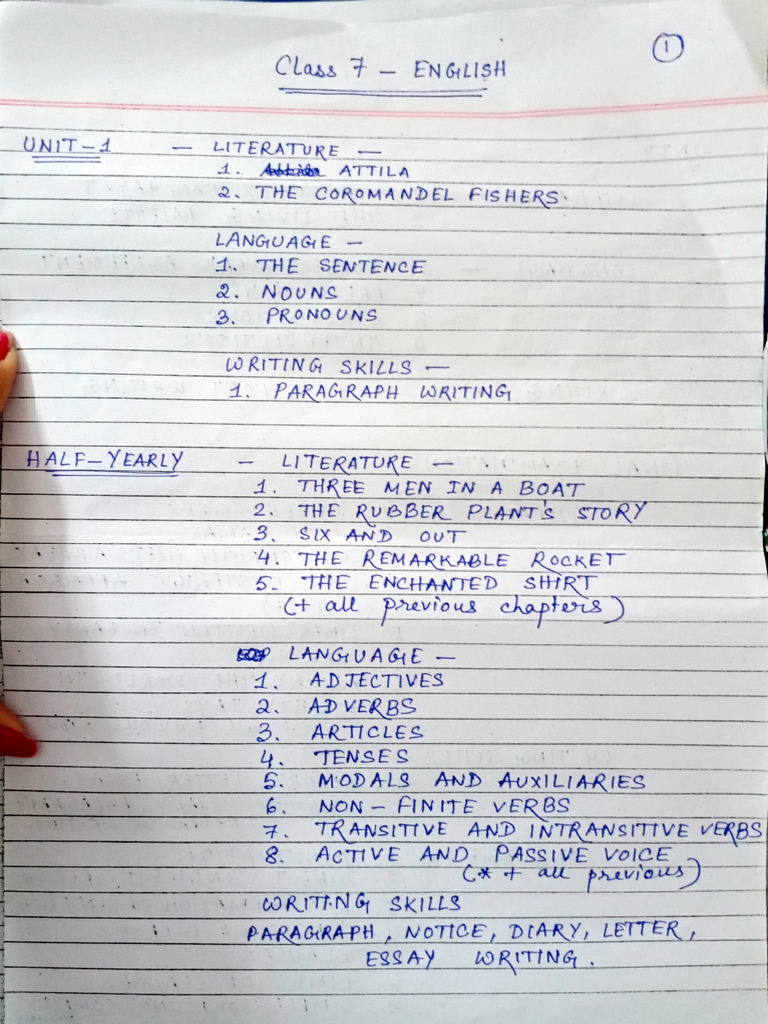 1
Class 7 - ENGLISH
UNIT-1 - LITERATURE -
1. ATTILA
2. THE COROMANDEL FISHERS.
LANGUAGE -
1. THE SENTENCE
2. NOUNS
3. PRONOUNS
WRITING SKILLS -
1. PARAGRAPH WRITING
HALF-YEARLY - LITERATURE -
1. THREE MEN IN A BOAT
2. THE RUBBER PLANT'S STORY
3. SIX AND OUT
4. THE REMARKABLE ROCKET
5. THE ENCHANTED SHIRT
(+ all previous chapters)
LANGUAGE -
1. ADJECTIVES
2. ADVERBS
3. ARTICLES
4. TENSES
5. MODALS AND AUXILIARIES
6. NON-FINITE VERBS
7. TRANSITIVE AND INTRANSITIVE VERBS
8. ACTIVE AND PASSIVE VOICE
(* + all previous)
WRITING SKILLS
PARAGRAPH, NOTICE, DIARY, LETTER,
ESSAY WRITING.